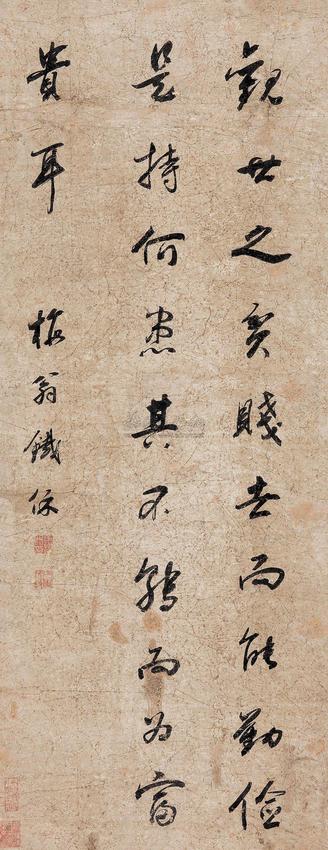 觀世之貧賤者而能勤儉
是持何患其不轉而為富
貴耳
梅翁鐵保